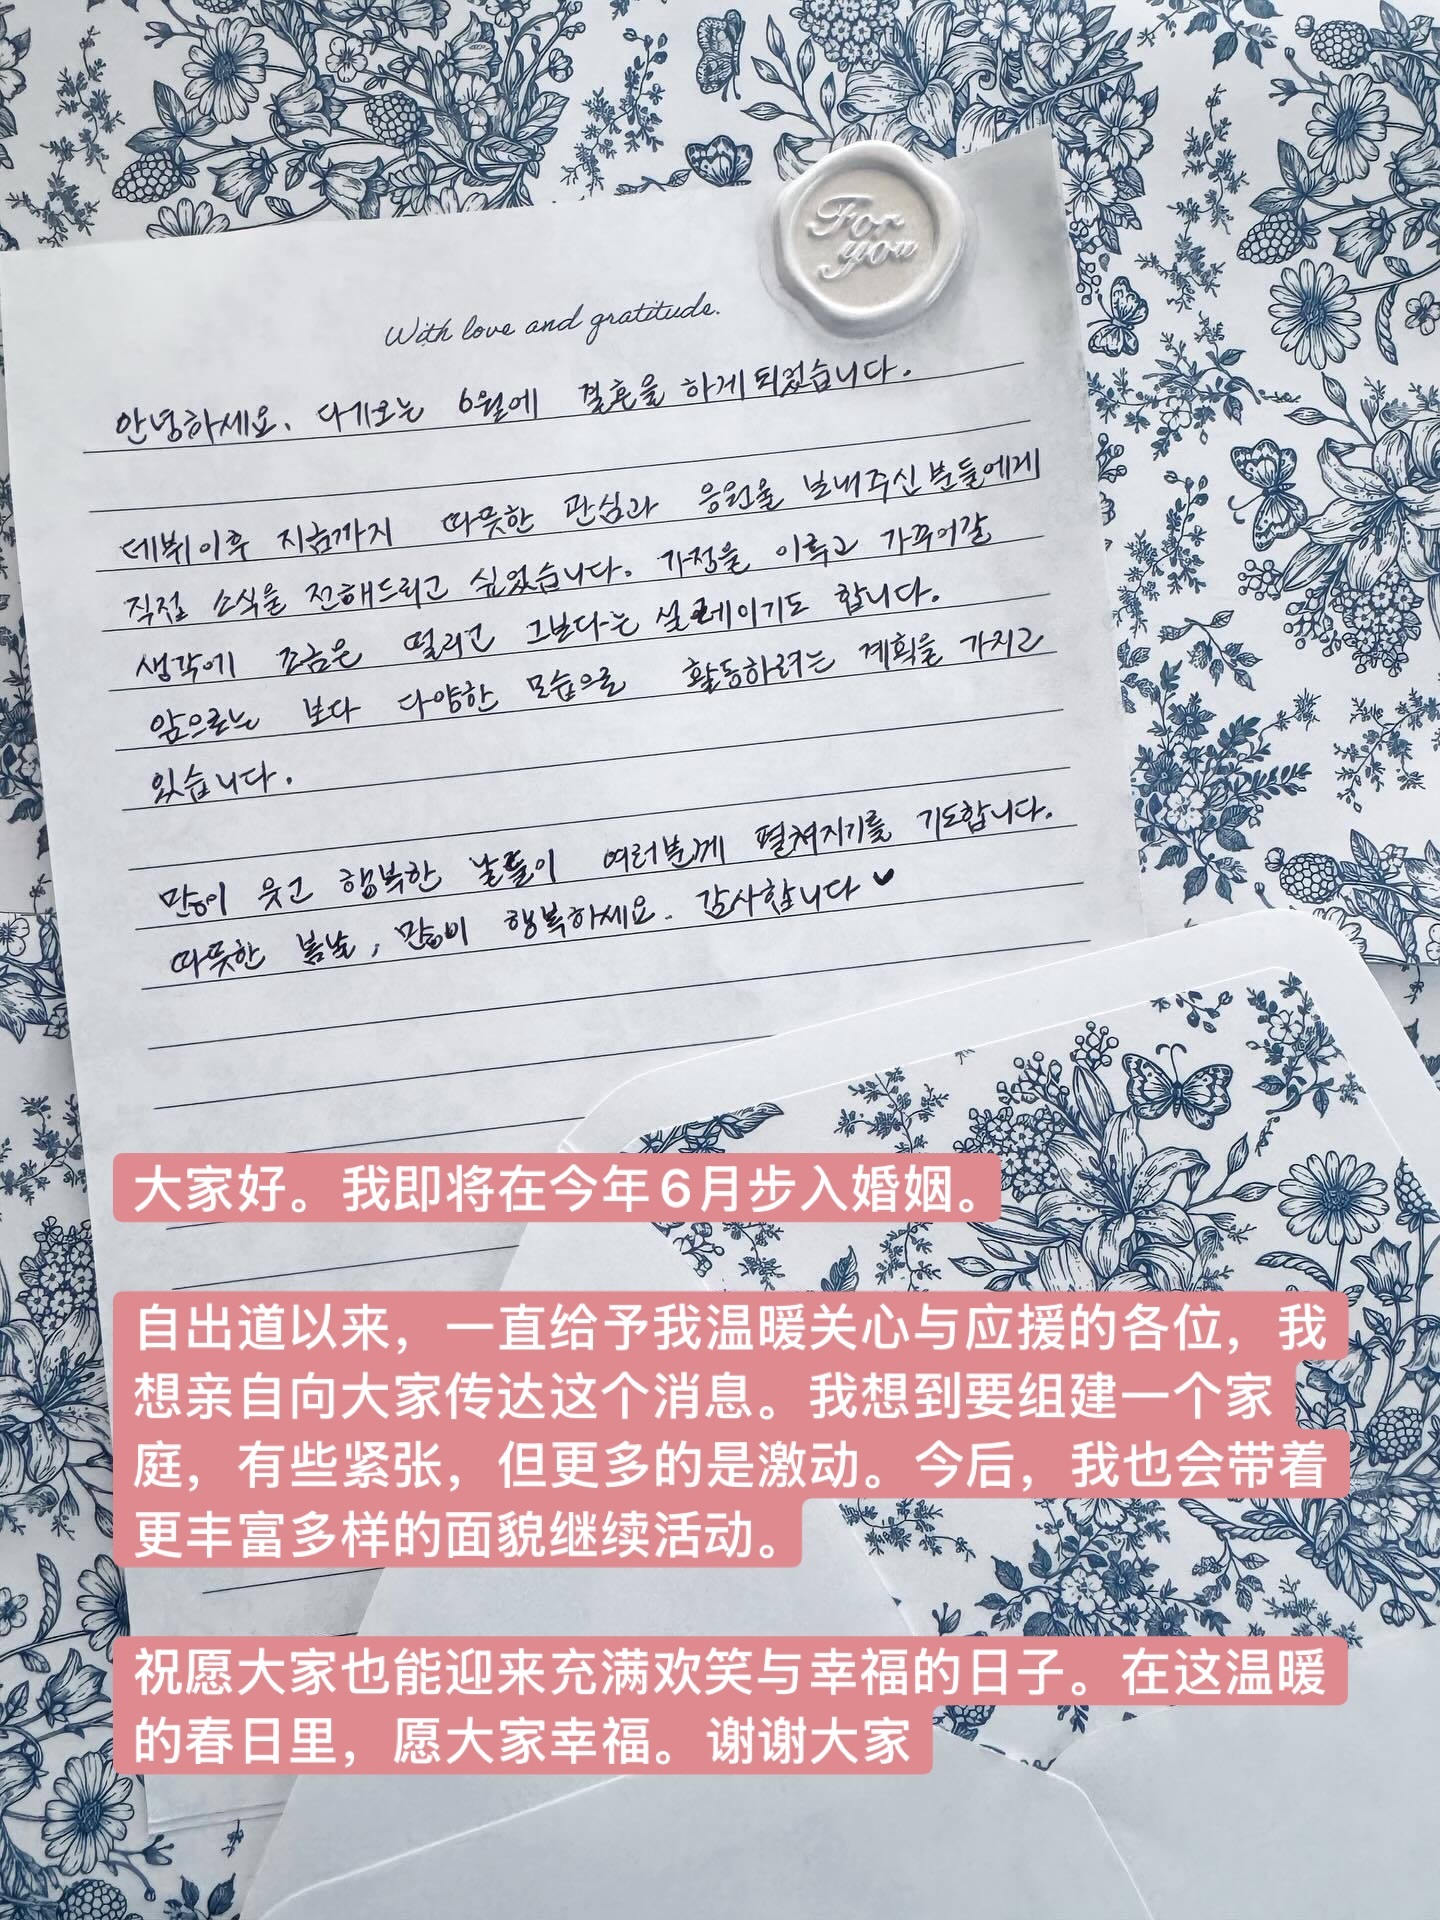 For
you
With love and gratitude.
안녕하세요. 다가오는 6월에 결혼을 하게 되었습니다.
데뷔이후 지금까지 따뜻한 관심과 응원을 보내주신 분들에게
직접 소식을 전해드리고 싶었습니다. 가정을 이루고 가꾸어갈
생각에 조금은 떨리고 그보다는 설레이기도 합니다.
앞으로는 보다 다양한 모습으로 활동하려는 계획을 가지고
있습니다.
많이 웃고 행복한 날들이 여러분께 펼쳐지기를 기도합니다.
따뜻한 봄날, 많이 행복하세요. 감사합니다 ♥
大家好。我即将在今年6月步入婚姻。
自出道以来，一直给予我温暖关心与应援的各位，我
想亲自向大家传达这个消息。我想到要组建一个家
庭，有些紧张，但更多的是激动。今后，我也会带着
更丰富多样的面貌继续活动。
祝愿大家也能迎来充满欢笑与幸福的日子。在这温暖
的春日里，愿大家幸福。谢谢大家